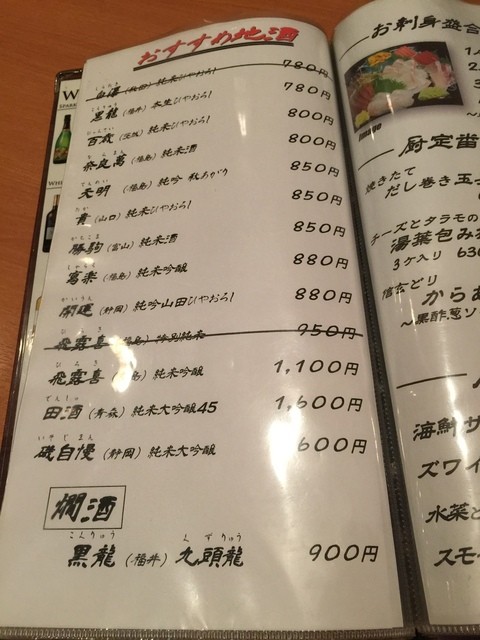 おすすめ地酒
白瀑 (秋田) 純米ひやおろし 780円
黒龍 (福井) 本生ひやおろし 780円
百歳 (茨城) 純米ひやおろし 800円
奈良萬 (福島) 純米酒 800円
天明 (福島) 純吟 秋あがり 850円
貴 (山口) 純米ひやおろし 850円
勝駒 (富山) 純米酒 850円
寫楽 (福島) 純米吟醸 880円
開運 (静岡) 純吟山田ひやおろし 880円
飛露喜 (福島) 特別純米 950円
飛露喜 (福島) 純米吟醸 1,100円
田酒 (青森) 純米大吟醸45 1,600円
磯自慢 (静岡) 純米大吟醸 600円
燗酒
黒龍 (福井) 九頭龍 900円
お刺身
厨定番
焼きたて
だし巻き玉
チーズとタラモの
湯葉包み
3ヶ入り 630
信玄どり
からあ
～黒酢葱ソ
海鮮サ
ズワイ
水菜と
スモー